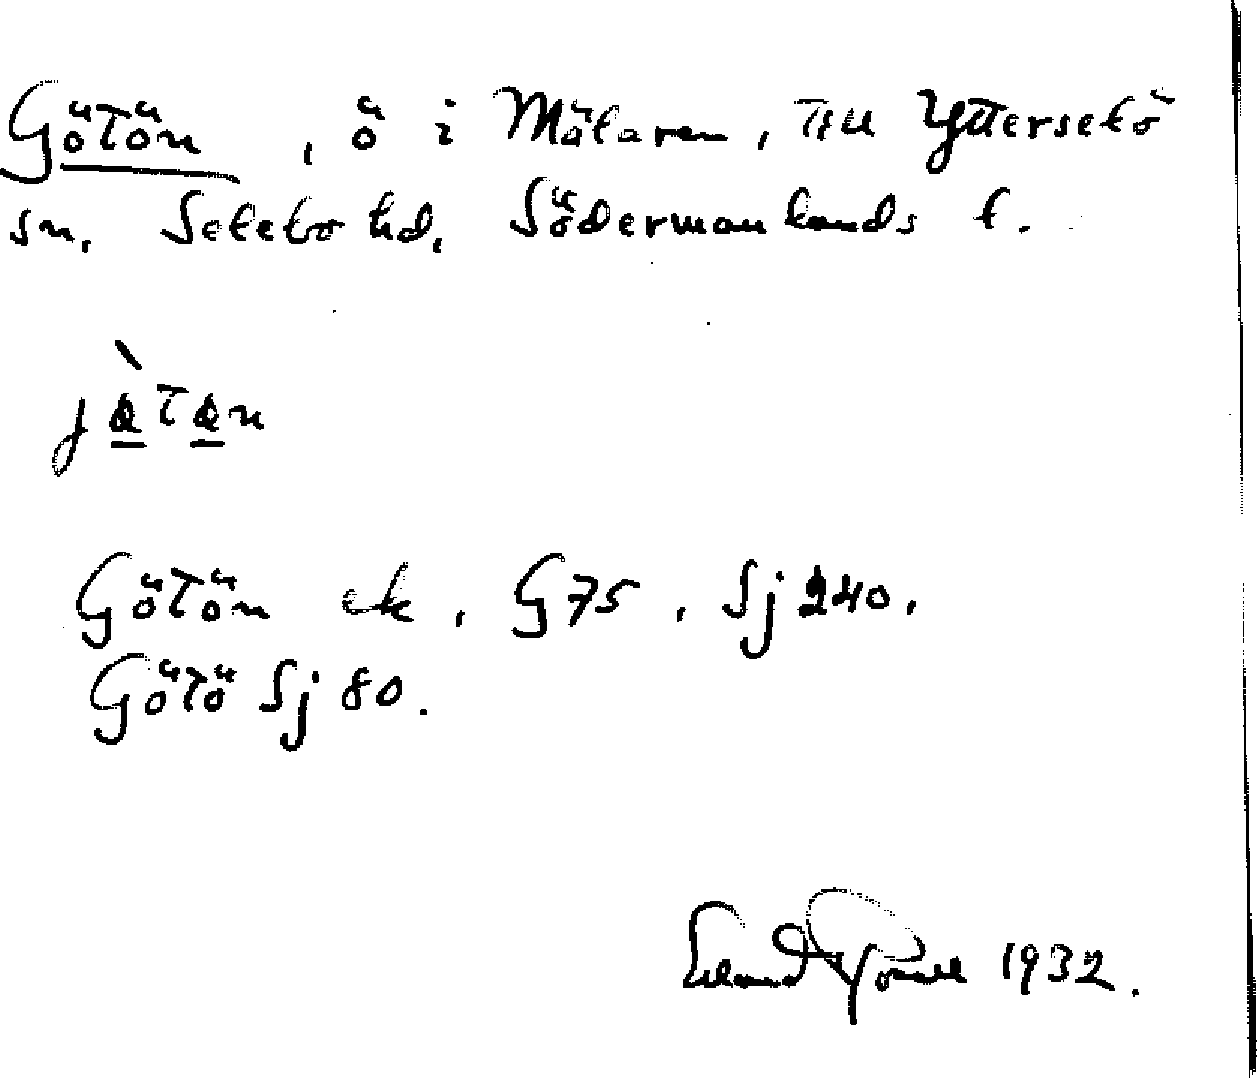 Götön, ö i Mälaren, till Ytterselö
sn, Selebo hd, Södermanlands l.
Götön ek, G75, Sj 240.
Götö Sj 80.
1932.